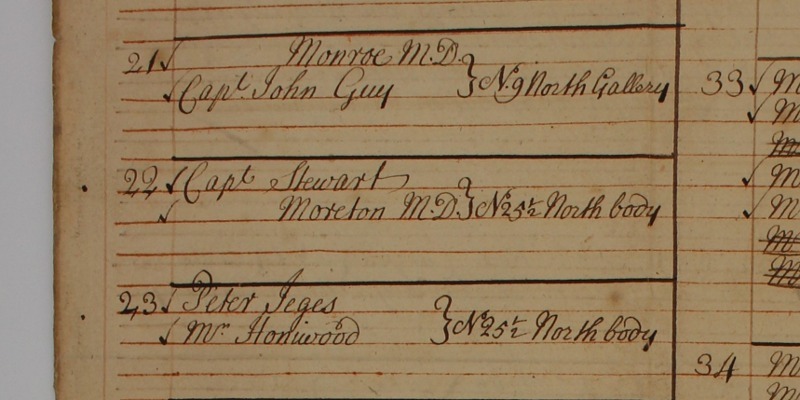 21 Monroe M.D.
Capt. John Guy } No. 9 North Gallery
22 Capt Stewart
Moreton M.D. } No 25½ North body
23 Peter Jeges
Mr. Honiwood } No 25½ North body
33
34